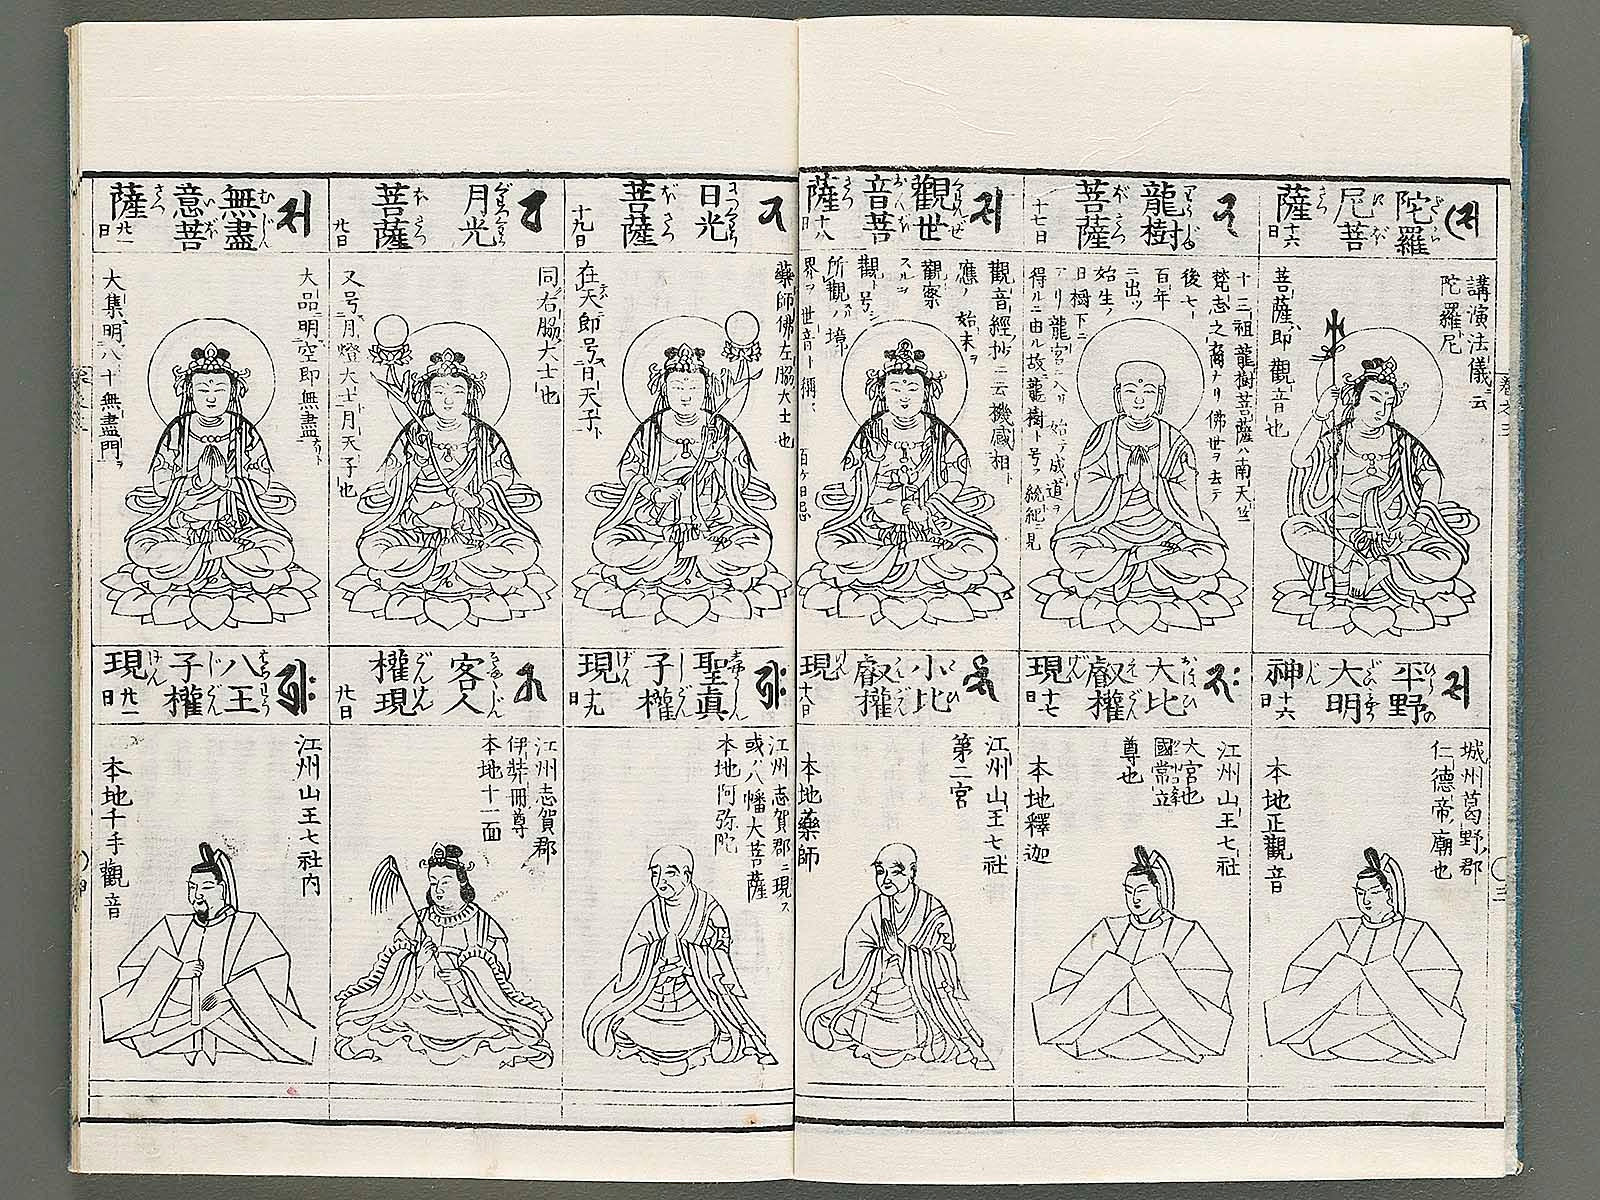 陀羅
尼菩
薩
十六日
講演法儀云
陀羅尼
菩薩即觀音也
龍樹
菩薩
十七日
十三祖龍樹菩薩ハ南天竺
梵志之裔ナリ佛世ヲ去テ
後七
百年
ニ出ツ
始生ノ
日樹下ニ
アリ龍宮ニ入リ始テ成道ヲ
得ルニ由ル故龍樹ト号ス統紀ニ見
觀世
音菩
薩
十八日
觀音經抄ニ云機感相
應ノ始末ヲ
觀察
スルヲ
觀ト号シ
所觀ノ境
界ヲ世音ト稱ス
百ケ日忌
日光
菩薩
十九日
藥師佛左脇大士也
在天即号日天子ト
月光
菩薩
廿日
同右脇大士也
又号月燈大士月天子也
無盡
意菩
薩
廿一日
大品明空即無盡
大集明八十無盡門ヲ
平野
大明
神
十六日
城州葛野郡
仁德帝廟也
本地正觀音
大比
叡權
現
十七日
江州山王七社
大宮也
國常立
尊也
本地釋迦
小比
叡權
現
十八日
江州山王七社
第二宮
本地藥師
聖眞
子權
現
十九日
江州志賀郡ニ現ス
或ハ八幡大菩薩
本地阿弥陀
客人
權現
廿日
江州志賀郡
伊弉冊尊
本地十一面
八王
子權
現
廿一日
江州山王七社内
本地千手觀音